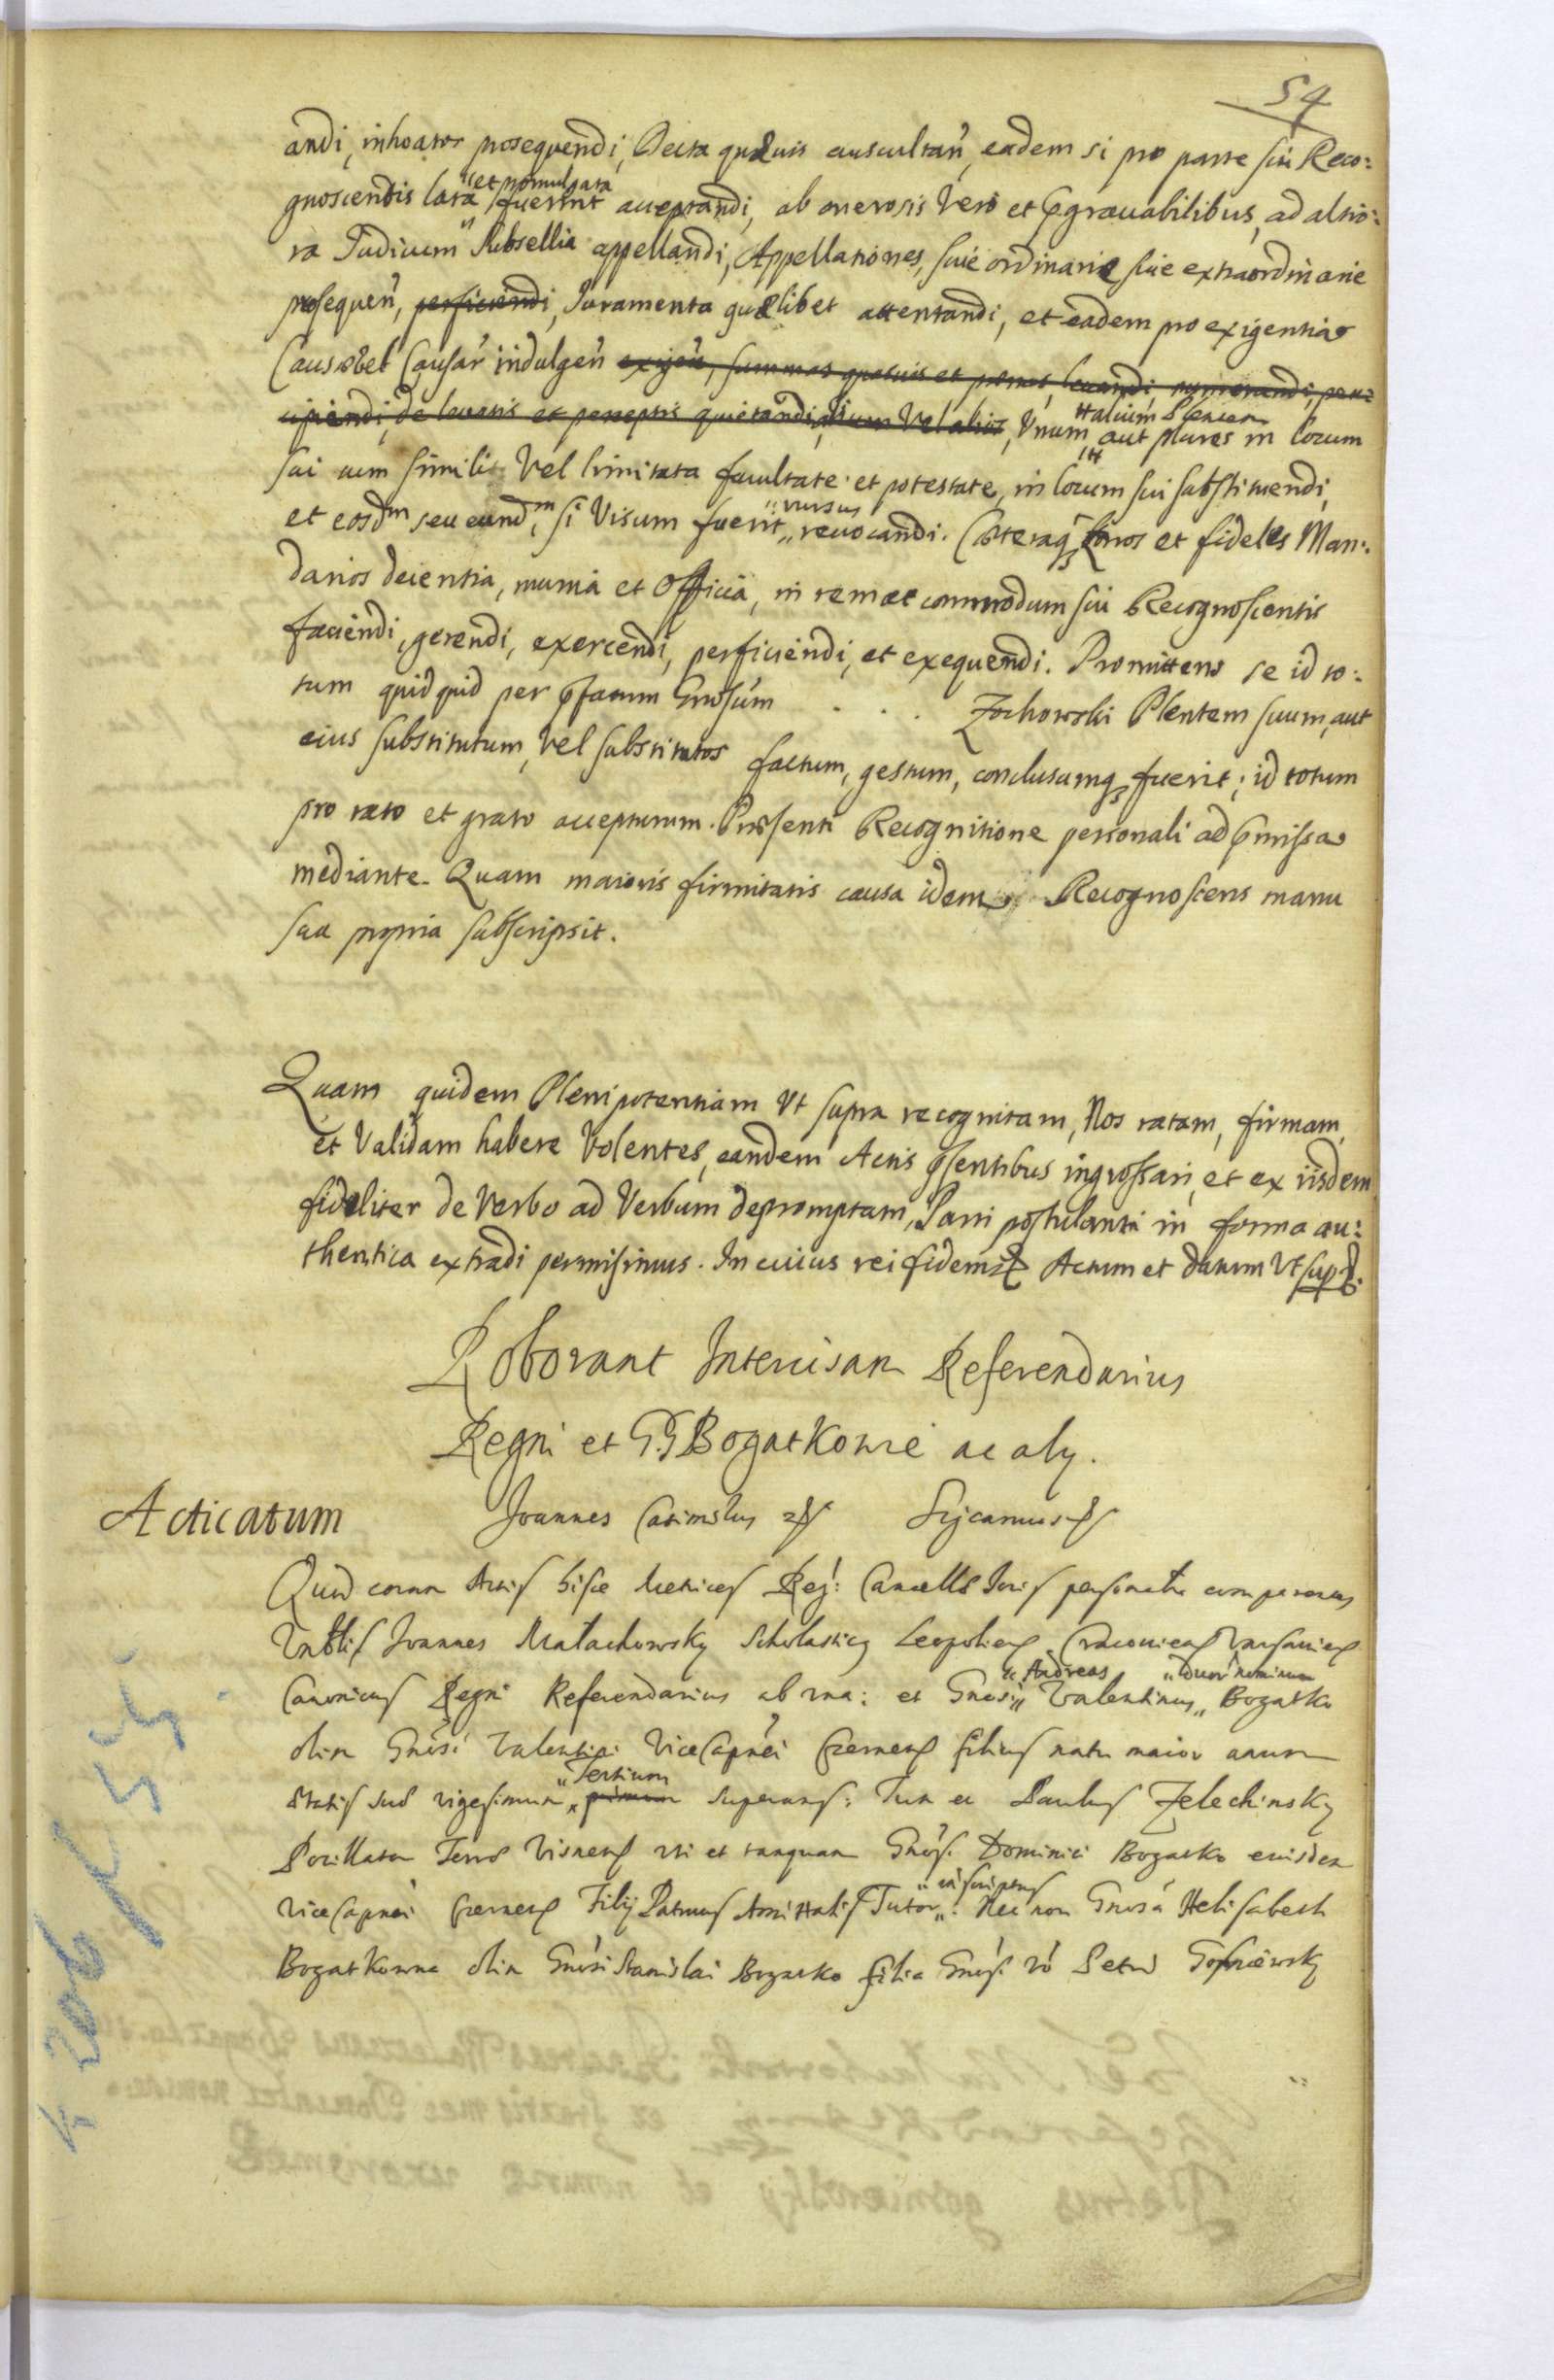 54
andi, inhoatos prosequendi, Decreta quævis auscultań, eadem si pro parte sui Reco:
gnoscendis lata et promulgata fuerint acceptandi, ab onerosis Verò et prægravabilibus, ad altio:
ra Judicium Subsellia appellandi, Appellationes, siue ordinarie siue extraordinarie
prosequeń, perficiendi, Juramenta quælibet attentandi, et eadem pro exigentia
Causæ vel Causar indulgeń exigeń, summas quasuis et levandi, percipiendi, de levatis et perceptis quietandi, alium Vel alios, Vnum alium Plenten aut plures in locum
sui cum simili Vel limitata facultate et potestate, in locum sui substituendi,
et eosdm seu eundm, si Visum fuerit rursus revocandi. Cæteraq bonos et fideles Man:
darios decentia, munia et Officia, in rem et commodum sui Recognoscentis
faciendi, gerendi, exercendi, perficiendi, et exequendi. Promittens se id to:
tum quidquid per pfatum Gnosum . . . Zochowski Plentem suum, aut
eius substitutum, Vel substitutos factum, gestum, conclusumq fuerit; id totum
pro rato et grato accepturum. Præsenti Recognitione personali ad pmissa
mediante. Quam maioris firmitatis causa idem Recognoscens manu
sua propria subscripsit.
Quam quidem Plenipotentiam Vt supra recognitam, Nos ratam, firmam,
et Validam habere Volentes, eandem Actis psentibus ingrossari, et ex iisdem
fideliter de Verbo ad Verbum depromptam, Parti postulanti in forma au:
thentica extradi permisimus. In cuius rei fidem Actum et datum Vt supr.
Roborant Intercisam Referendarius
Regni et G.G Bogatkowie ac aly.
Acticatum
Joannes Casimirus
Quod coram Actis hisce Metrices Reg: Cancellæ Joris personaliter comparens
Joannes Małachowsky Scholasticq Leopolien Cracovien Varsavien
Canonicus Regni Referendarius ab vna: et Gnosi Andreas Valentinus duor nominum Bogatko
olim Gnosi Valentini ViceCapnei Czernen filius natu maior annum
ætatis suæ vigesimum Tertium primum superans: Tum et Paulus Zelechinsky
Pocillator Terræ Visnen vti et tanquam Gnosi Dominici Bogatko eiusdem
ViceCapnei Czernen Filij Patruus Tutor. Nec non Gnosa Helisabeth
Bogatkowna olim Gnosi Stanislai Bogatko filia Gnosi vó Petri Gosniewsky